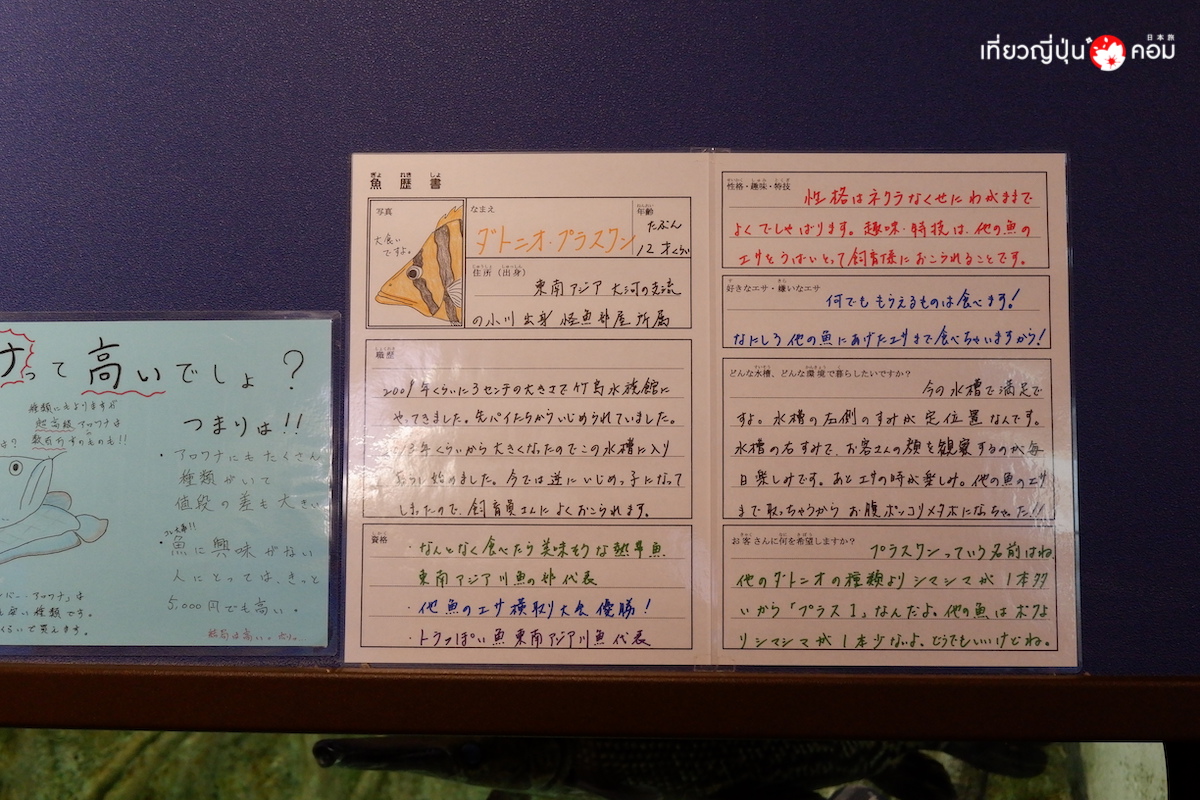 日本旅
เที่ยวญี่ปุ่น คอม
って高いでしょ?
種類にもよりますが
超高級アロワナは
つまりは!!
・アロワナにもたくさん
種類がいて
値段の差も大きい
・魚に興味がない
人にとっては、きっと
5,000円でも高い。
ぎょ れき しょ
魚 歴 書
写真
大食い
ですよ。
なまえ
ダトニオ・プラスワン
年齢
たぶん
12才くらい
住所(出身)
東南アジア大河の支流
の小川出身 怪魚部屋所属
職歴
2009年くらいに3センチの大きさで竹島水族館に
やってきました。先パイたちからいじめられていました。
年くらいから大きくなったのでこの水槽に入り
始めました。今では逆にいじめっ子になって
しまったので、飼育員さんによくおこられます。
資格
・なんとなく食べたら美味そうな熱帯魚
東南アジア川魚の部代表
・他魚のエサ横取り大会優勝!
・トラっぽい魚東南アジア川魚代表
性格・趣味・特技
性格はネクラなくせにわがままで
よくでしゃばります。趣味・特技は、他の魚の
エサをうばいとって飼育様におこられることです。
好きなエサ・嫌いなエサ
何でももらえるものは食べます!
なにしろ他の魚にあげたエサまで食べちゃいますから!
どんな水槽、どんな環境で暮らしたいですか?
今の水槽で満足で
すよ。水槽の右側のすみが定位置なんです。
水槽の右すみで、お客さんの顔を観察するのが毎
日楽しみです。あとエサの時が楽しみ。他の魚のエサ
まで取っちゃうからお腹ポッコリメタボになっちゃった!!
お客さんに何を希望しますか?
プラスワンっていう名前はね、
他のダトニオの種類よりシマシマが1本多
いから「プラス1」なんだよ。他の魚はボクよ
りシマシマが1本少ないよ、どうでもいいけどね。